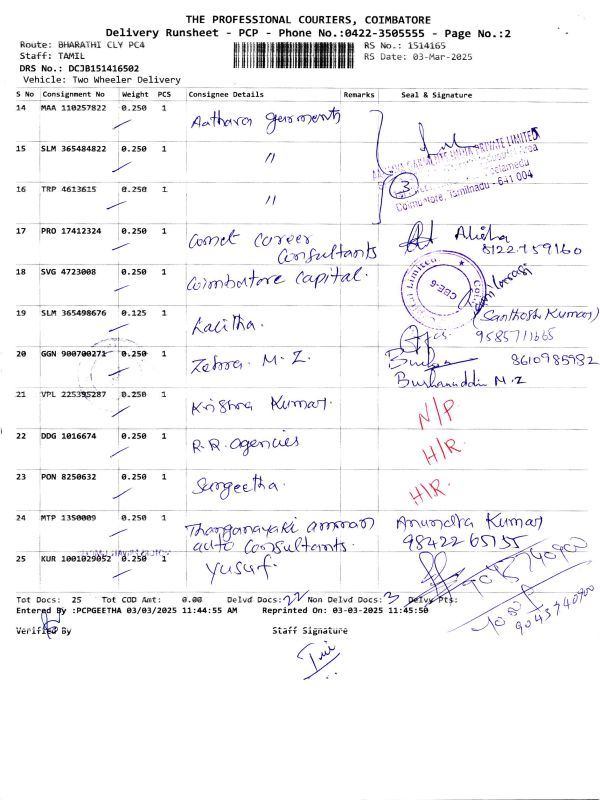 THE PROFESSIONAL COURIERS, COIMBATORE
Delivery Runsheet - PCP - Phone No.:0422-3505555 - Page No.:2
Route: BHARATHI CLY PC4 RS No.: 1514165
Staff: TAMIL RS Date: 03-Mar-2025
DRS No.: DCJB151416502
Vehicle: Two Wheeler Delivery
S No Consignment No Weight PCS Consignee Details Remarks Seal & Signature
14 MAA 110257822 0.250 1 Aathava garments
15 SLM 365484822 0.250 1 "
PRIVATE LIMITED
16 TRP 4613615 0.250 1 " 3
Coimbatore, Tamilnadu - 641 004
17 PRO 17412324 0.250 1 Comet Career Consultants Alisha
18 SVG 4723008 0.250 1 Coimbatore Capital.
Limited CBE-6
19 SLM 365498676 0.125 1 Lalitha. (Santhosh Kumar)
9585711665
20 GGN 900700271 0.250 1 Zehra. M. Z. 8610985982
Burhanuddin M.Z
21 VPL 225395287 0.250 1 Krishna Kumar. N/P
22 DDG 1016674 0.250 1 R.R. Agencies H/R.
23 PON 8250632 0.250 1 Sangeetha. H/R.
24 MTP 1350009 0.250 1 Thanganayaki amman auto Consultants. Anundra Kumar
98422 65155
25 KUR 1001029052 0.250 1 Yusuf.
Tot Docs: 25 Tot COD Amt: 0.00 Delvd Docs: 22 Non Delvd Docs: 3 Delvy Pts:
Entered By :PCPGEETHA 03/03/2025 11:44:55 AM Reprinted On: 03-03-2025 11:45:50
9043740900
Verified By Staff Signature